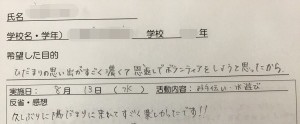 氏名
学校名・学年) 学校 年
希望した目的
ひだまりの思い出がすごく濃くて恩返しでボランティアをしようと思ったから。
実施日: 8月 13日(水) 活動内容: 水遊び
反省・感想
久しぶりに陽だまりに来れてすごく楽しかったです!!